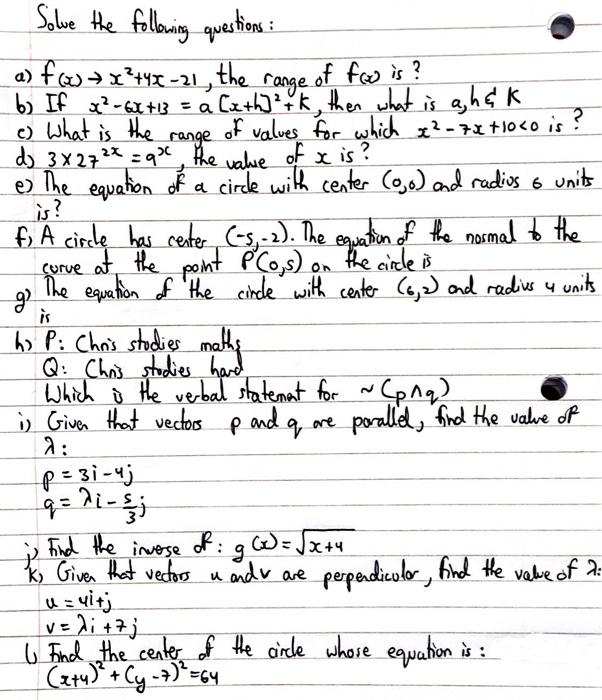 Solve the following questions:
a) f(x) → x²+4x-21, the range of f(x) is?
b) If x²-6x+13 = a[x+h]²+k, then what is a,h & K
c) What is the range of values for which x²-7x+10<0 is?
d) 3×27^2x = 9^x, the value of x is?
e) The equation of a circle with center (0,0) and radius 6 units
is?
f) A circle has center (-5,-2). The equation of the normal to the
curve at the point P(0,5) on the circle is
g) The equation of the circle with center (6,2) and radius 4 units
is
h) P: Chris studies maths
Q: Chris studies hard
Which is the verbal statement for ~(p∧q)
i) Given that vectors p and q are parallel, find the value of
λ:
p = 3i-4j
q = λi-5/3j
j) Find the inverse of: g(x) = √x+4
k) Given that vectors u and v are perpendicular, find the value of λ:
u = 4i+j
v = λi+7j
l) Find the center of the circle whose equation is:
(x+4)²+(y-7)²=64